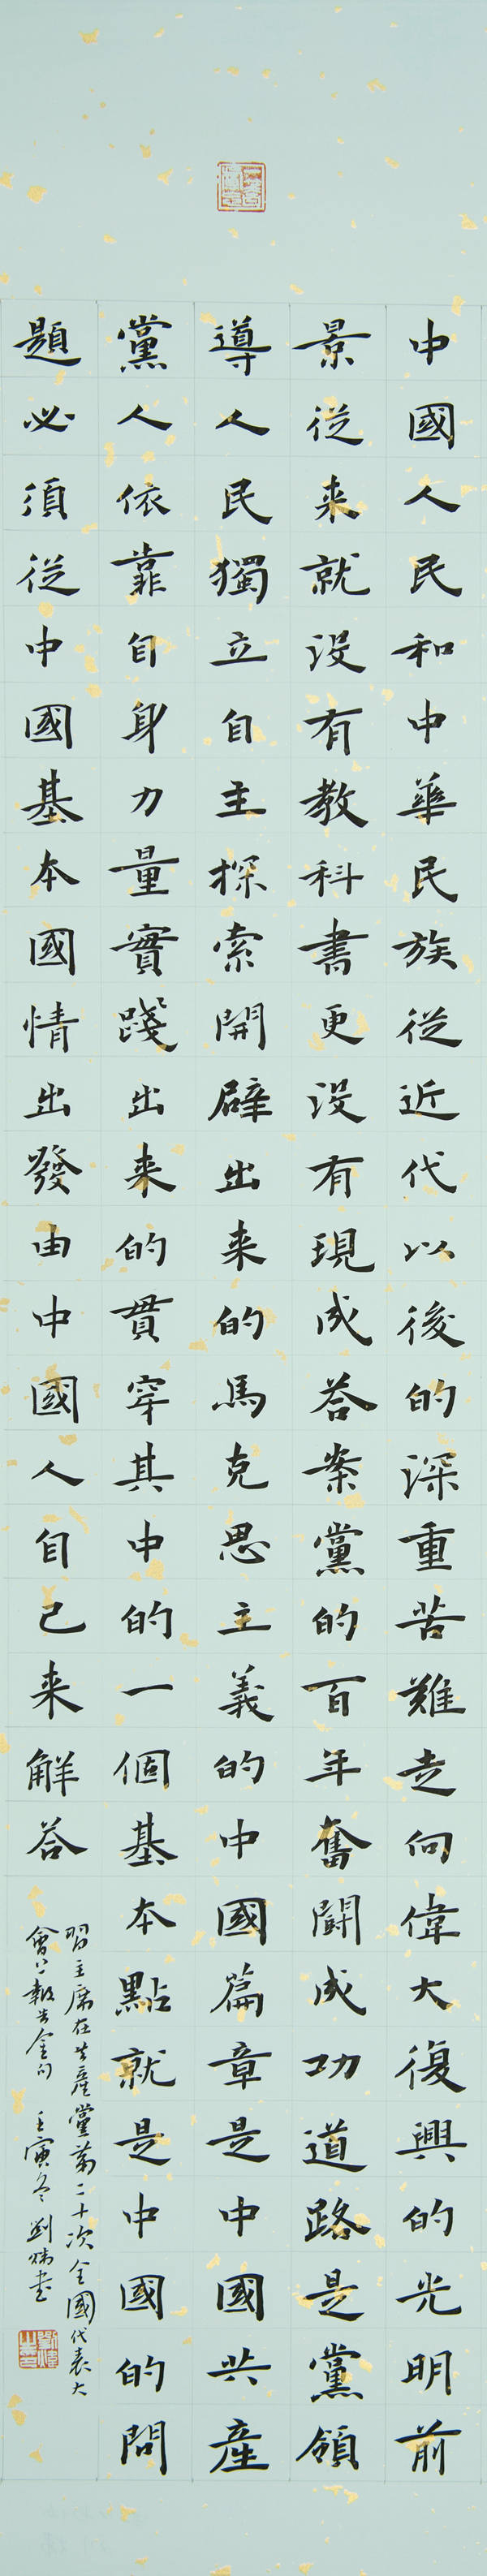 中國人民和中華民族從近代以後的深重苦難走向偉大復興的光明前
景從来就没有教科書更没有現成答案黨的百年奮鬪成功道路是黨領
導人民獨立自主探索開辟出来的馬克思主義的中國篇章是中國共産
黨人依靠自身力量實踐出来的貫穿其中的一個基本點就是中國的問
題必須從中國基本國情出發由中國人自己来解答
習主席在共產黨第二十次全國代表大
會上報告金句 壬寅冬 劉煒書